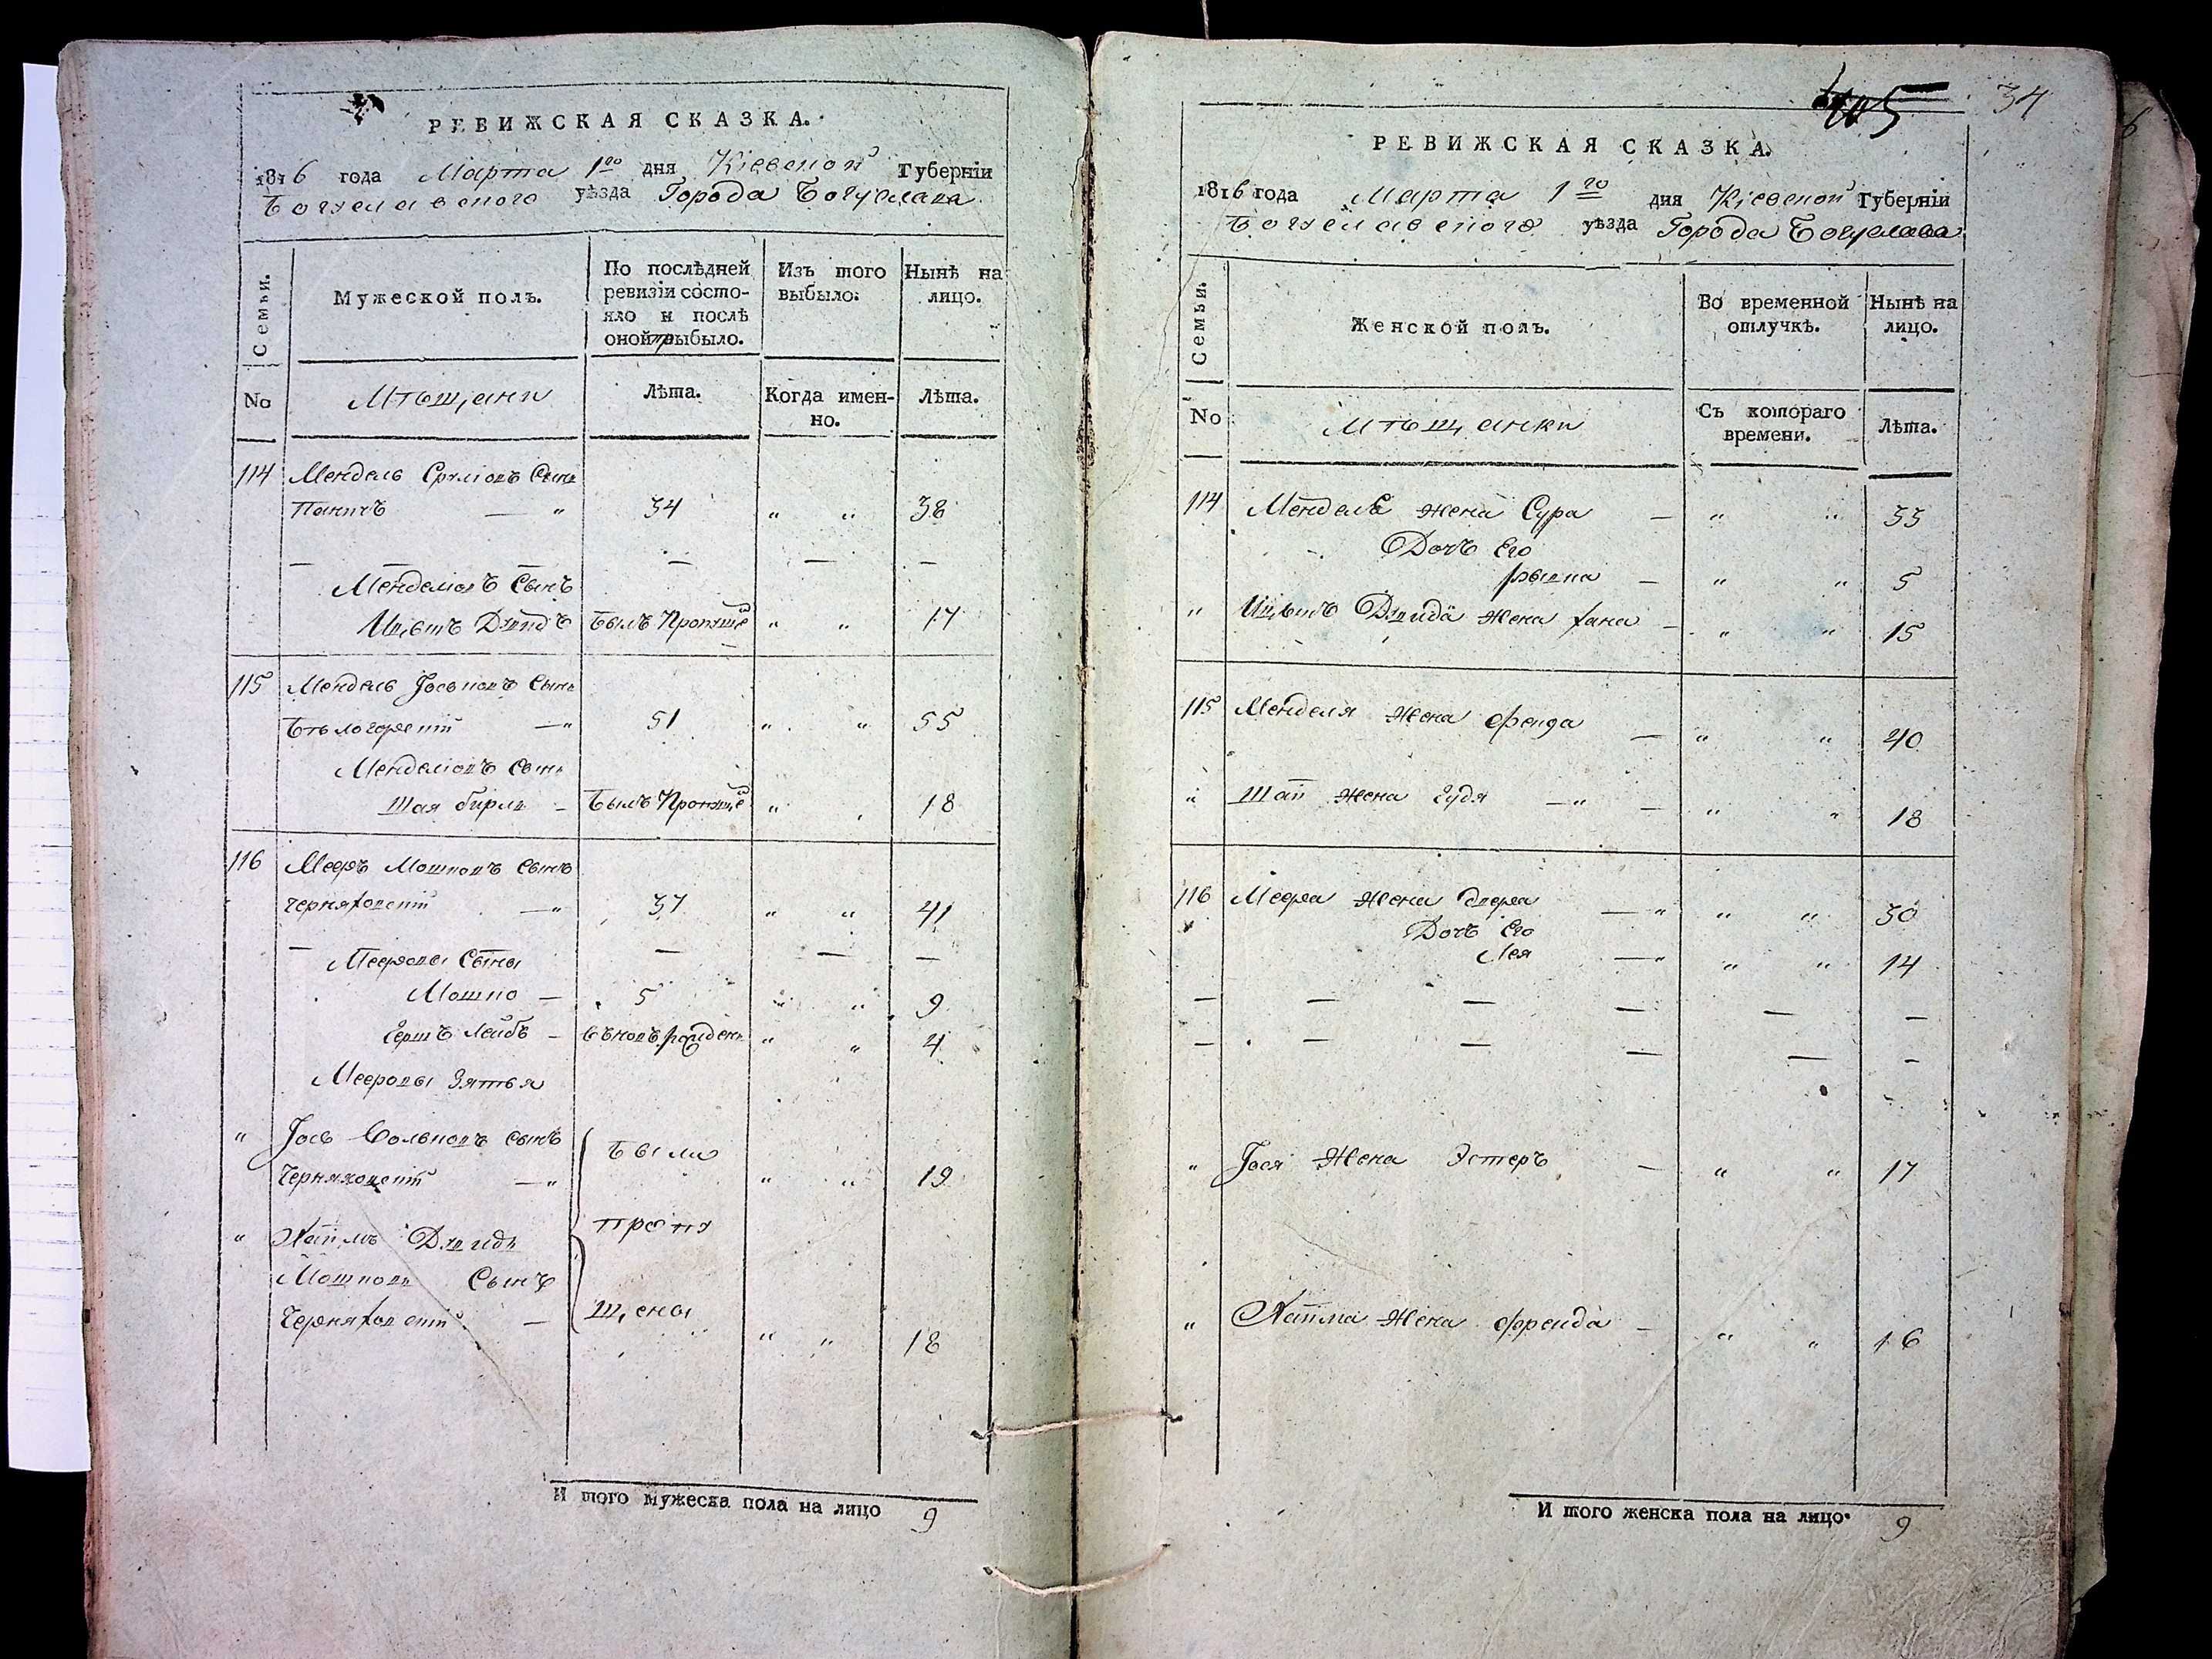 РЕВИЖСКАЯ СКАЗКА.
1816 года Марта 1го дня Кіевской Губерніи
Богуславского уѣзда Города Богуслава
Семьи.
Мужеской полъ.
По послѣдней
ревизіи состо-
яло и послѣ
оной прибыло.
Изъ того
выбыло.
Нынѣ на
лицо.
No
Мѣщани
Лѣта.
Когда имен-
но.
Лѣта.
114 Мендель Сруліовъ Сынъ
34 " " 38
Менделіовъ Сынъ
Давидъ Былъ " " 17
115 Мендель Іоськовъ Сынъ
Бѣлоцерковскій 51 " " 55
Менделіовъ Сынъ
Шая Былъ " 18
116 Мееръ Мошковъ Сынъ
Черняховскій 37 " " 41
Мееровы Сыны
Мошко 5 " " 9
Гершъ Лейбъ " " 4
Мееровы Зятья
" Іось Вольковъ Сынъ
Черняховскій Были " " 19
" Хаимъ Давидъ пропу
Мошковъ Сынъ
Черняховскій щены " " 18
И того мужеска пола на лицо 9
405
34
РЕВИЖСКАЯ СКАЗКА.
1816 года Марта 1го дня Кіевской Губерніи
Богуславского уѣзда Города Богуслава
Семьи.
Женской полъ.
Во временной
отлучкѣ.
Нынѣ на
лицо.
No
Мѣщанки
Съ котораго
времени.
Лѣта.
114 Менделя жена Сура " " 33
Дочь Его
" " 5
" Давида жена Хана " " 15
115 Менделя жена Фейга " " 40
" Шаи жена Гудя " " 18
116 Меера жена " " 30
Дочь Его
Лея " " 14
" Іося Жена Эстеръ " " 17
" Хаима жена Фрейда " " 16
И того женска пола на лицо 9